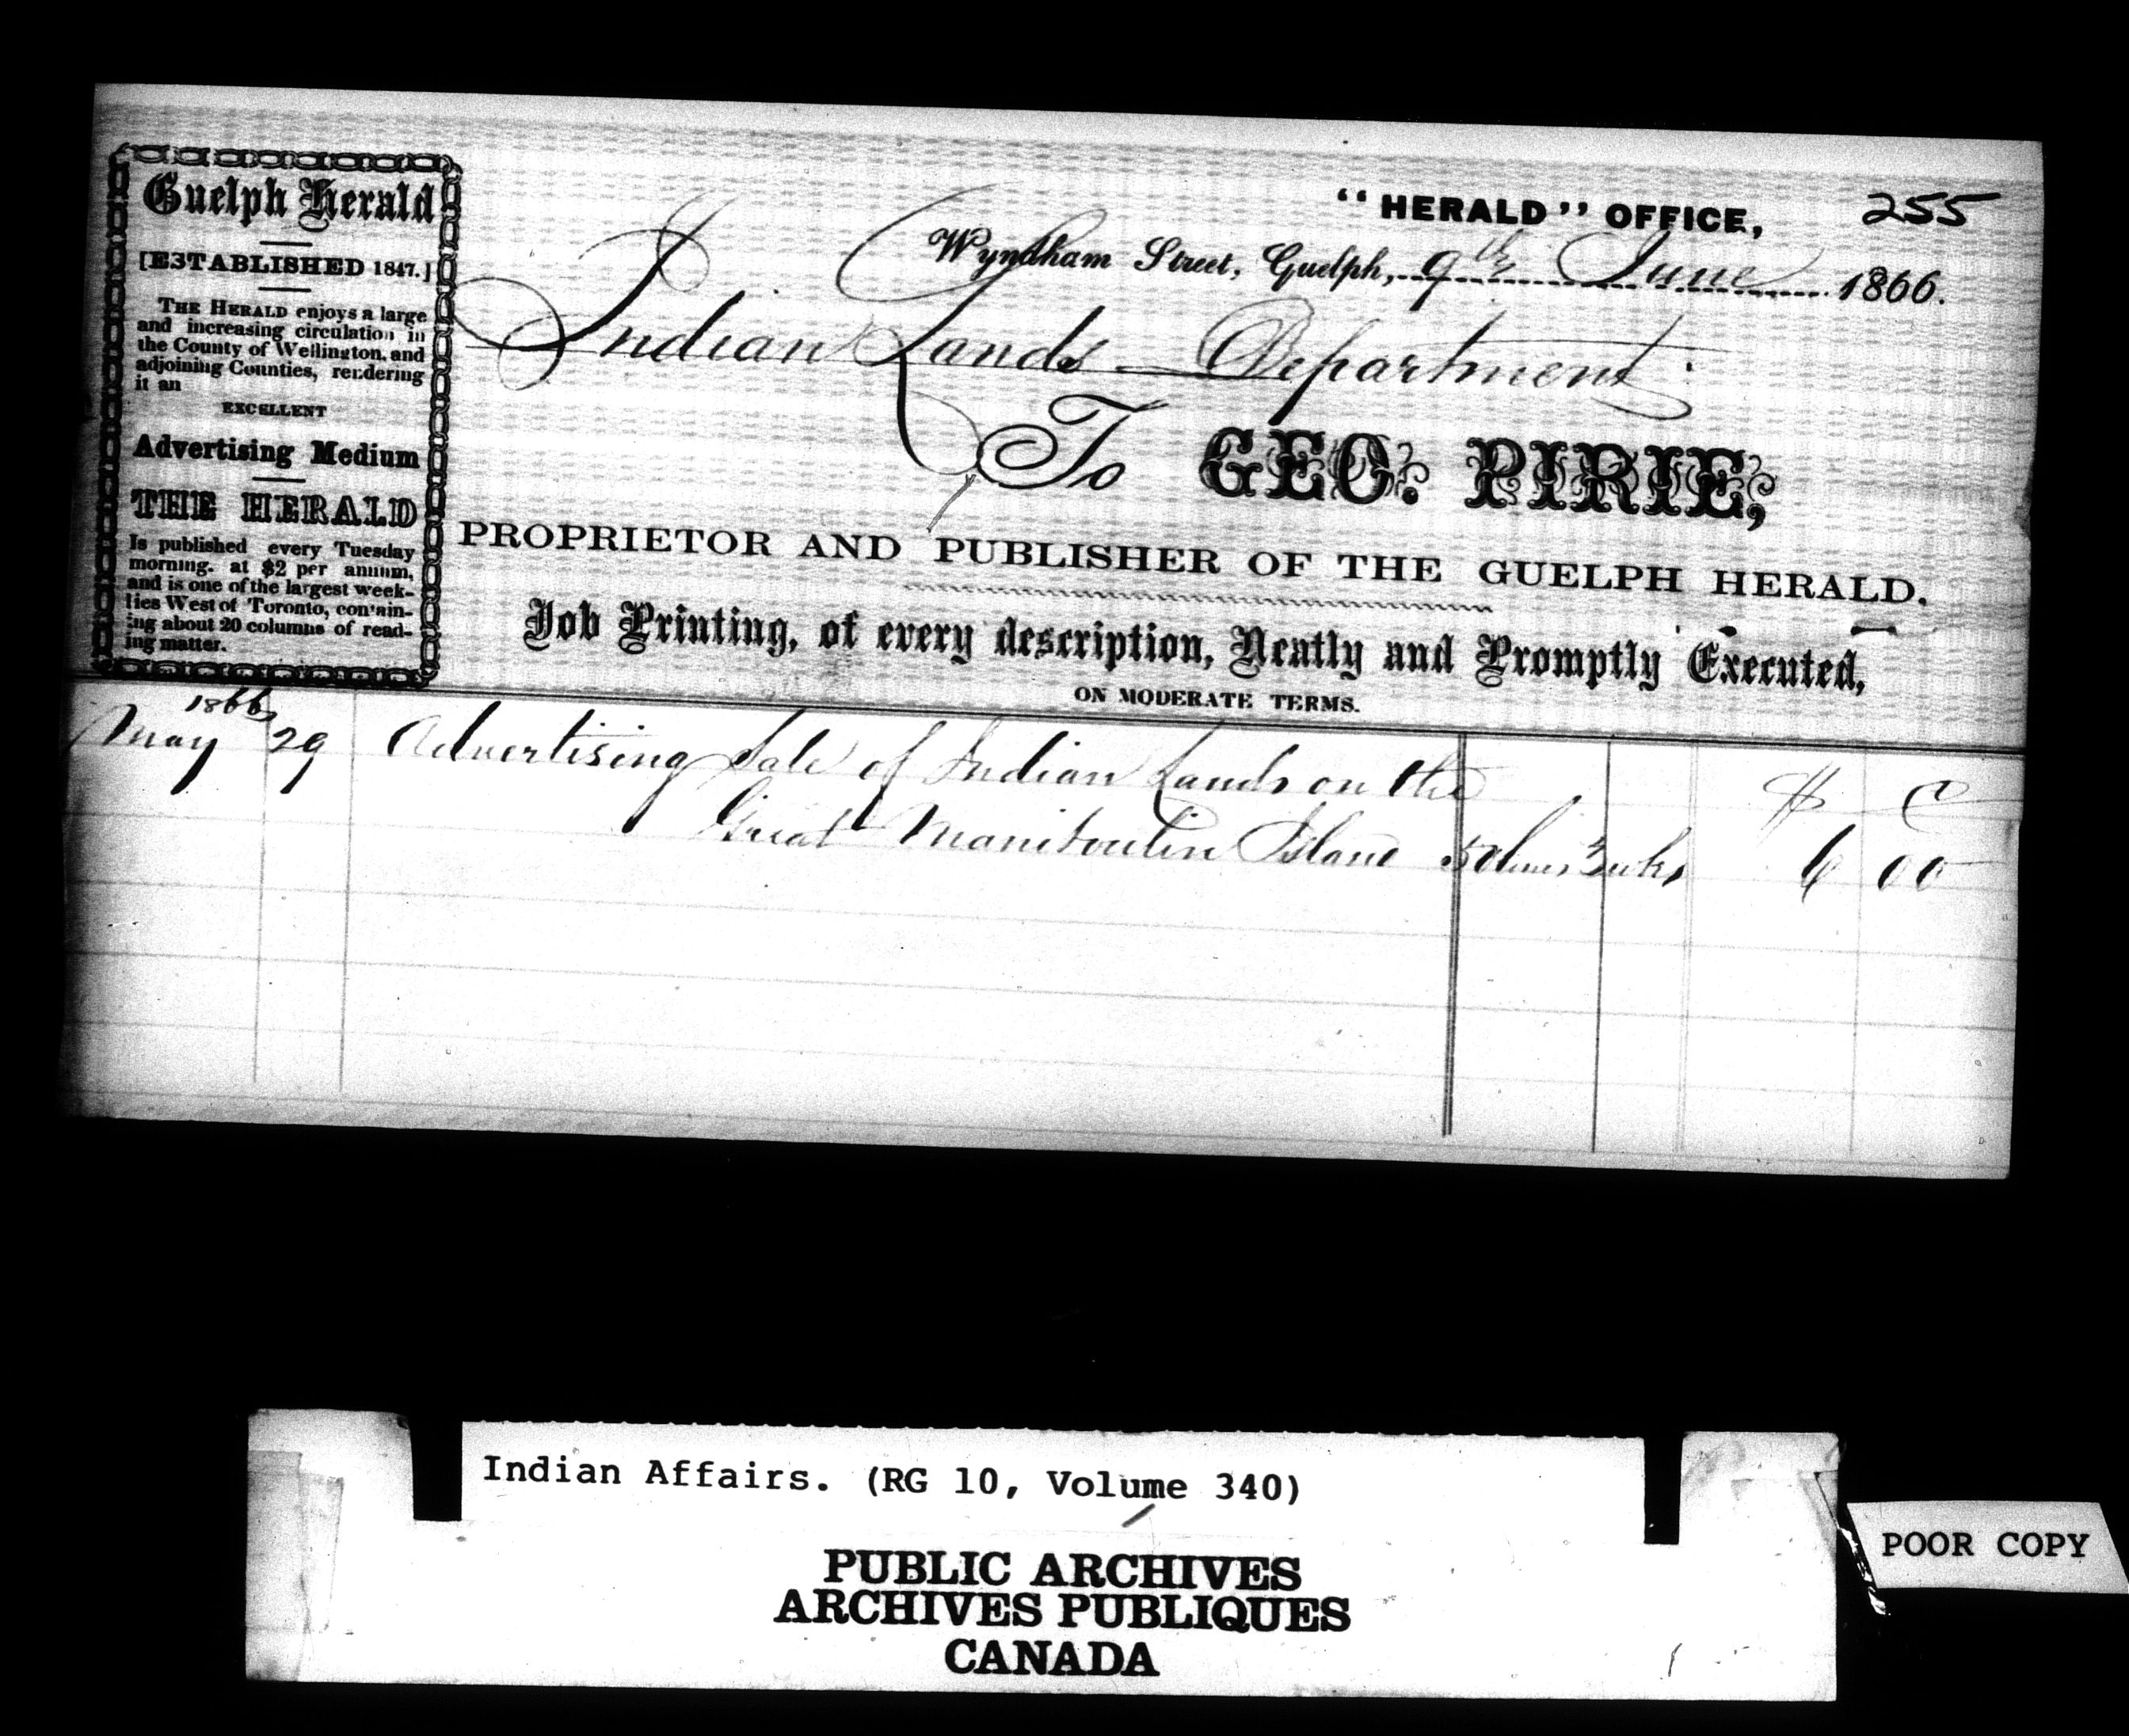 Guelph Herald
[ESTABLISHED 1847.]
THE HERALD enjoys a large
and increasing circulation in
the County of Wellington, and
adjoining Counties, rendering
it an
EXCELLENT
Advertising Medium
THE HERALD
Is published every Tuesday
morning. at $2 per annum,
and is one of the largest week-
lies West of Toronto, contain-
ing about 20 columns of read-
ing matter.
"HERALD" OFFICE, 255
Wyndham Street, Guelph, 9th June 1866.
Indian Lands Department
To GEO. PIRIE,
PROPRIETOR AND PUBLISHER OF THE GUELPH HERALD.
Job Printing, of every description, Neatly and Promptly Executed,
ON MODERATE TERMS.
1866
May 29 Advertising Sale of Indian Lands on the $ C
Great Manitoulin Island 50 lines 3 wks 6 00
Indian Affairs. (RG 10, Volume 340)
PUBLIC ARCHIVES
ARCHIVES PUBLIQUES
CANADA
POOR COPY